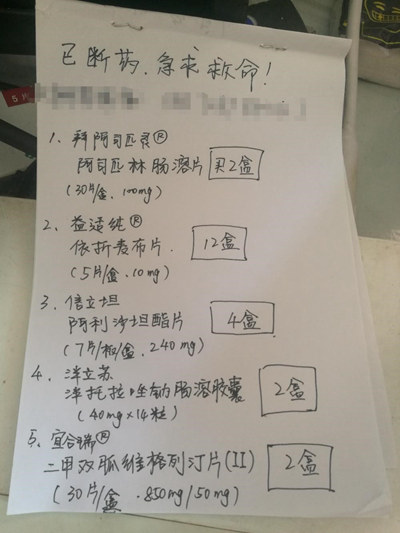 已断药.急求救命!
1、拜阿司匹灵®
阿司匹林肠溶片 买2盒
(30片/盒、100mg)
2、益适纯®
依折麦布片. 12盒
(5片/盒.10mg)
3、信立坦
阿利沙坦酯片 4盒
(7片/板/盒、240mg)
4、泮立苏
泮托拉唑钠肠溶胶囊 2盒
(40mg×14粒)
5、宜合瑞®
二甲双胍维格列汀片(II) 2盒
(30片/盒.850mg/50mg)